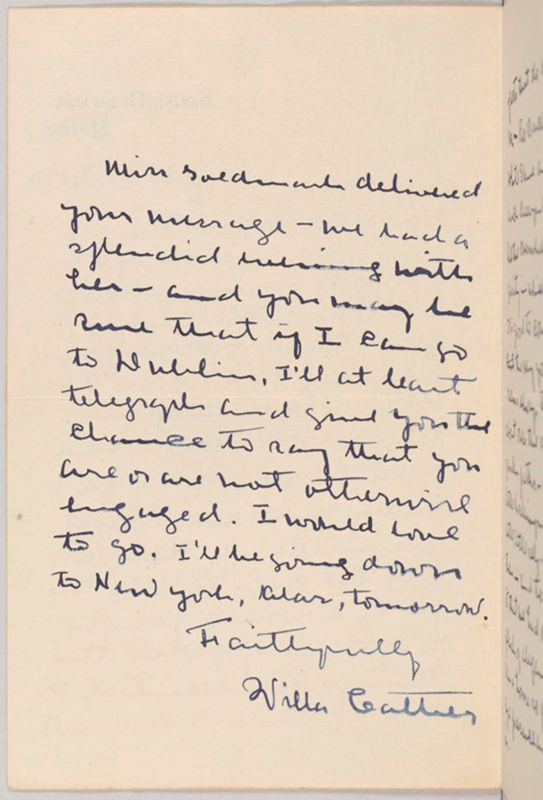 Miss Goldmark delivered
your message — we had a
splendid evening with
her — and you may be
sure that if I can go
to Dublin, I'll at least
telegraph and give you the
chance to say that you
are or are not otherwise
engaged. I would love
to go. I'll be going down
to New York, alas, tomorrow.
Faithfully
Willa Cather